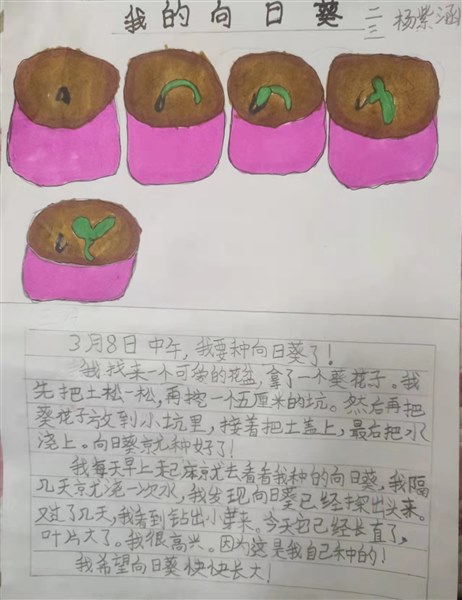 我的向日葵 二三 杨紫涵
3月8日中午，我要种向日葵了！
我找来一个可爱的花盆，拿了一个葵花子。我
先把土松一松，再挖一个五厘米的坑。然后再把
葵花子放到小坑里，接着把土盖上，最后把水
浇上。向日葵就种好了！
我每天早上起床就去看看我种的向日葵。我隔
几天就浇一次水，我发现向日葵已经探出头来。
又过了几天，我看到钻出小芽来。今天它已经长直了，
叶片大了。我很高兴。因为这是我自己种的！
我希望向日葵快快长大！